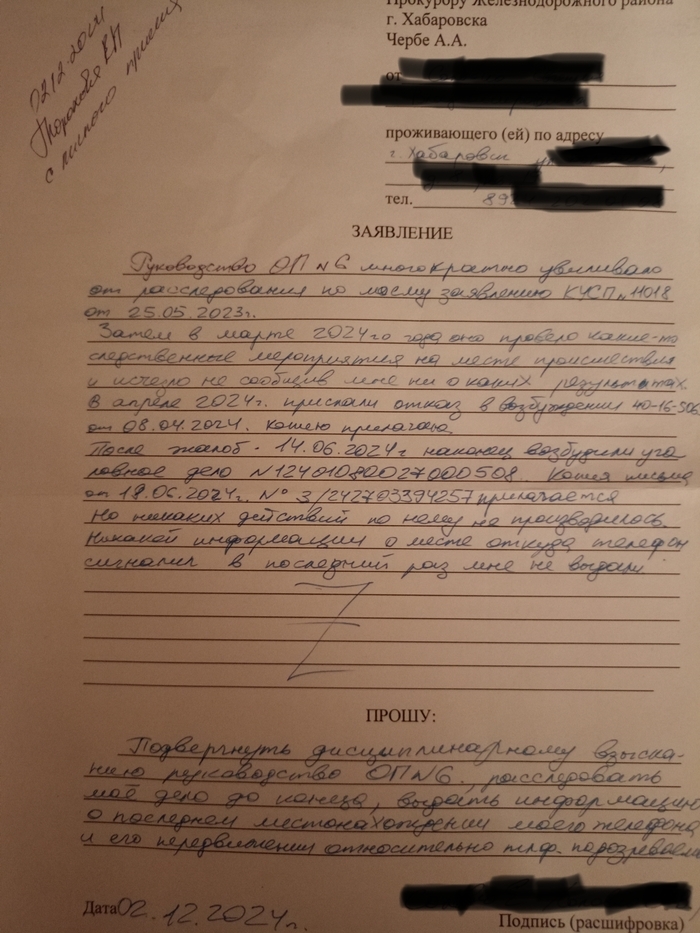 02.12.2024
с личного приёма
Прокурору Железнодорожного района
г. Хабаровска
Чербе А.А.
от
проживающего (ей) по адресу
г. Хабаровск ул.
тел. 89
ЗАЯВЛЕНИЕ
Руководство ОП №6 многократно увиливало
от расследования по моему заявлению КУСП №11018
от 25.05.2023г.
Затем в марте 2024го года оно провело какие-то
следственные мероприятия на месте происшествия
и исчезло не сообщив мне ни о каких результатах.
В апреле 2024г. прислали отказ в возбуждении 40-16-506
от 08.04.2024. Копию прилагаю.
После жалоб - 14.06.2024г наконец возбудили уго
ловное дело №12401080027000508. Копия письма
от 18.06.2024г. № 3/242703394257 прилагается
Но никаких действий по нему не производилось.
Никакой информации о месте откуда телефон
сигналил в последний раз мне не выдали
ПРОШУ:
Подвергнуть дисциплинарному взыска-
нию руководство ОП №6, расследовать
моё дело до конца, выдать информацию
о последнем местонахождении моего телефона
и его передвижении относительно тлф. подозреваем
Дата 02.12.2024г.
Подпись (расшифровка)